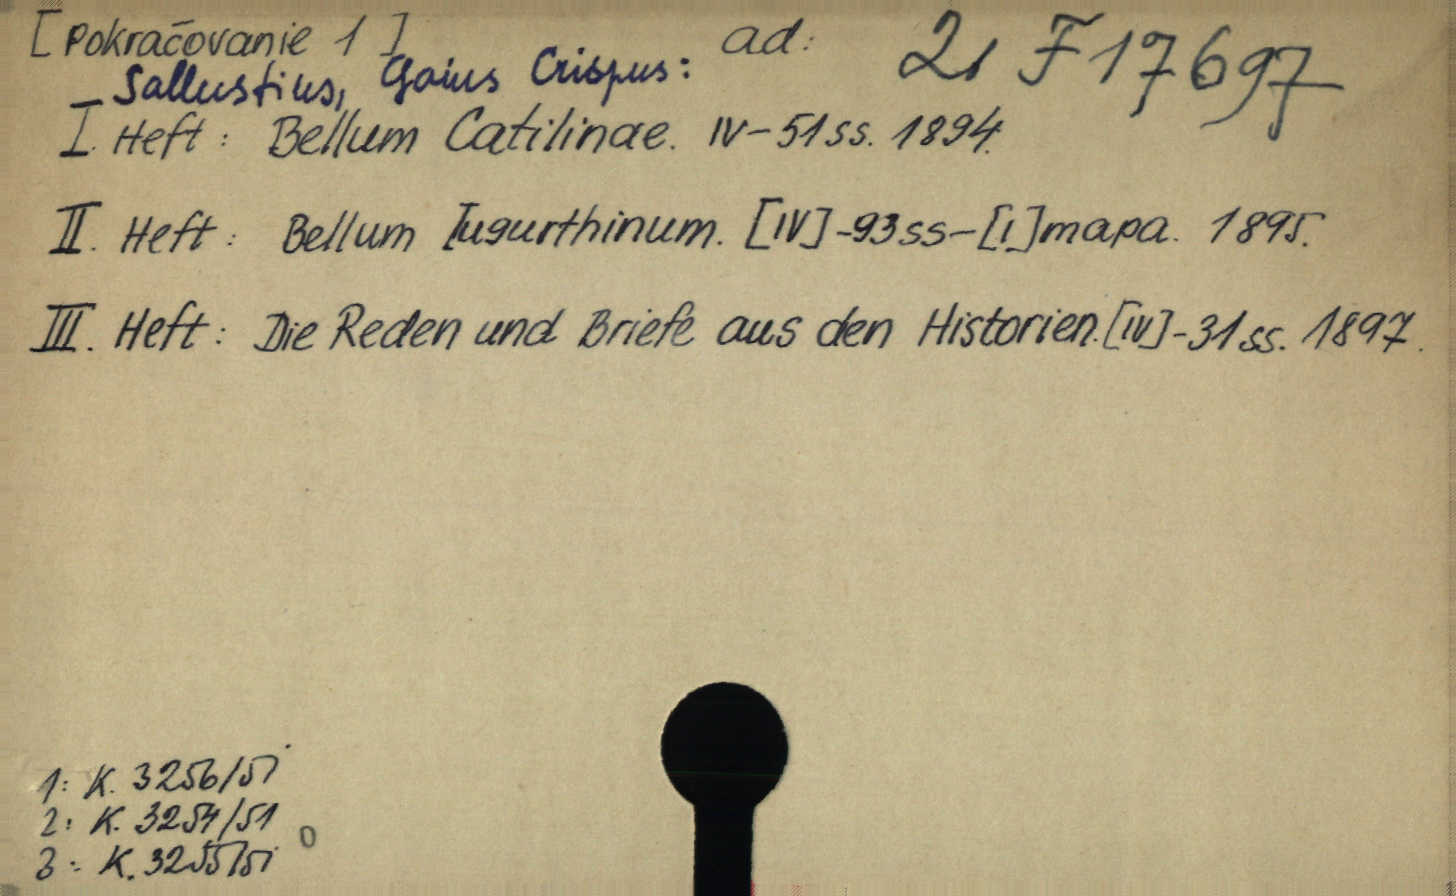 [Pokračovanie 1] ad: 2, F 17697
Sallustius, Gaius Crispus:
I. Heft: Bellum Catilinae. IV-51 ss. 1894.
II. Heft: Bellum Iugurthinum. [IV]-93 ss-[I] mapa. 1895.
III. Heft: Die Reden und Briefe aus den Historien. [IV]-31 ss. 1897.
1: K. 3256/51
2: K. 3254/51
3: K. 3255/51
0